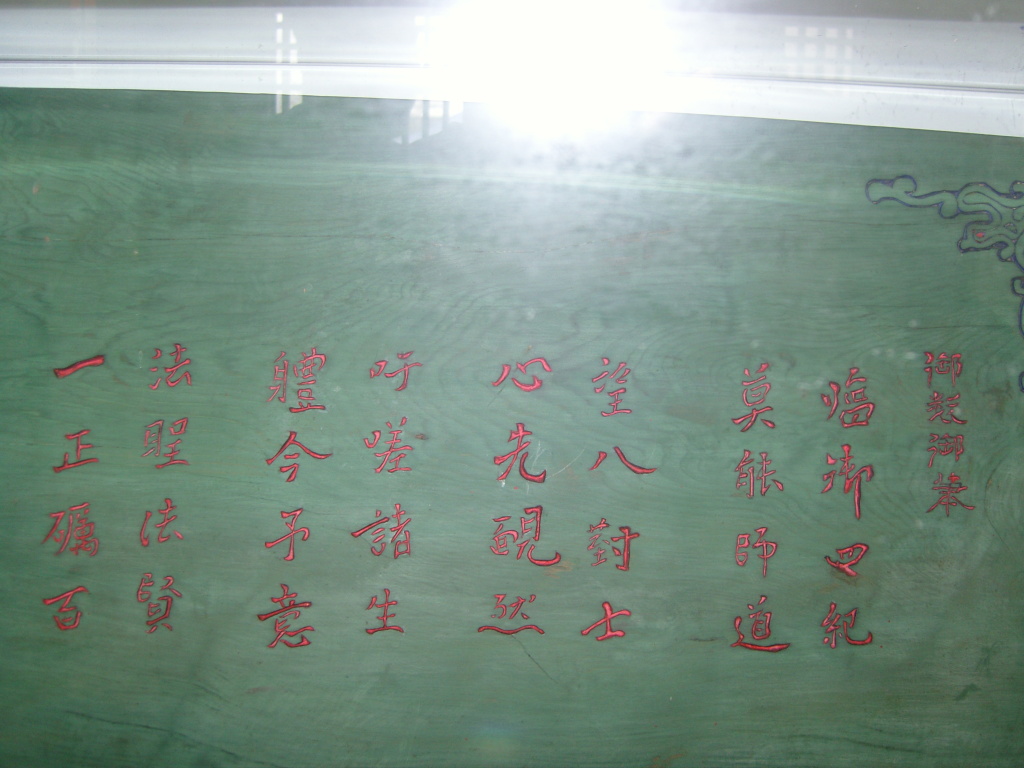 御製御筆
臨御四紀
莫能師道
望八對士
心先靦然
吁嗟諸生
軆今予意
法聖法賢
一正礪百